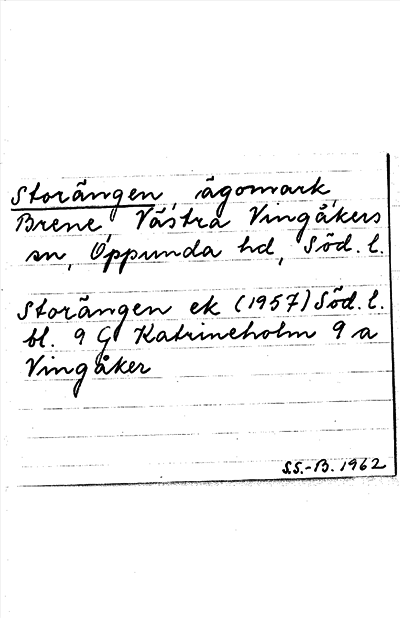 Storängen, ägomark,
Brene, Västra Vingåkers
sn, Oppunda hd, Söd. l.
Storängen ek (1957) Söd. l.
bl. 9 G Katrineholm 9 a
Vingåker
S.S.-B. 1962